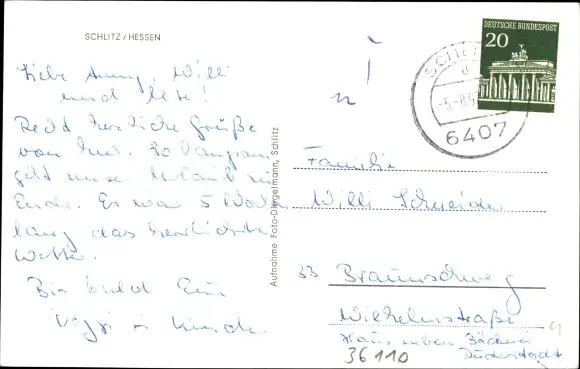 SCHLITZ/HESSEN
Liebe Anny, Willi
und Ilse!
Recht herzliche Grüße
von hier. So langsam
geht unser Urlaub zu
Ende. Es war 5 Wochen
lang das herrlichste
Wetter.
Bis bald Eure
u. Kinder
Aufnahme Foto-Diegelmann, Schlitz
DEUTSCHE BUNDESPOST
20
SCHLITZ
6407
Familie
Willi Schneider
33 Braunschweig
Wilhelmstraße
Haus neben Bäckerei
Duderstadt
36110